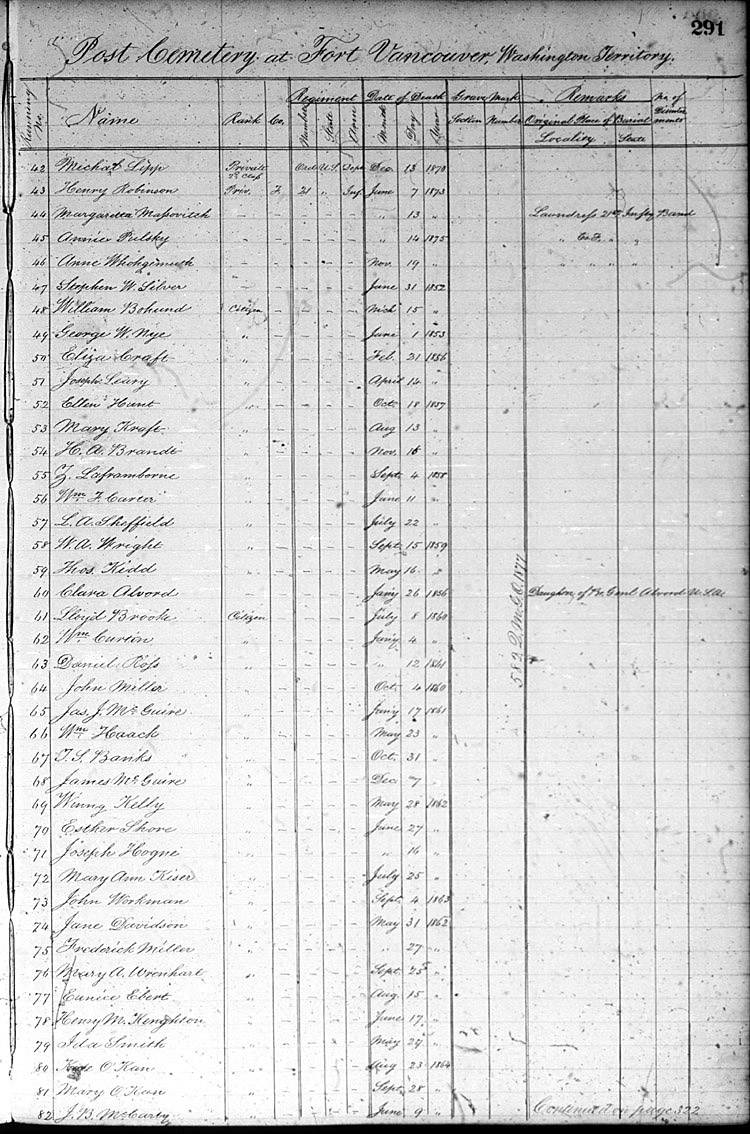 291
Post Cemetery at Fort Vancouver, Washington Territory.
Running No. Name Rank Co. Regiment Number State Arm Date of Death Month Day Year Grave Section Mark Number Remarks Original Place of Burial Locality State No. of
42 Lipp Private 2d Class – Ord U.S. Dec. 13 1870
43 Henry Robinson Priv. 21 " Inf. June 7 1873
44 Margaretta Massovitch – – – – – " 13 " Laundress 21st Infty Band
45 Annie Pulsky – – – – – " 14 1875 " Co. " "
46 Anne – – – – – Nov. 19 " " " " "
47 Stephen W. Silver – – – – – June 31 1852
48 William Bohund Citizen – – – – 15 "
49 George W. Nye " – – – – June 1 1853
50 Eliza Craft " – – – – Feb. 21 1856
51 Joseph Leary " – – – – April 14 "
52 Ellen Hunt " – – – – Oct. 18 1857
53 Mary Kraft " – – – – Aug 13 "
54 H. A. Brandt " – – – – Nov. 16 "
55 Z. Laframborne " – – – – Sept. 4 1858
56 Wm F. Carter " – – – – June 11 "
57 L. A. Sheffield " – – – – July 22 "
58 W. A. Wright " – – – – Sept. 15 1859
59 Thos. Kidd " – – – – May 16 "
60 Clara Alvord " – – – – Jany 26 1856 Daughter of Genl. Alvord U.S.A.
61 Lloyd Brooke Citizen – – – – July 8 1860
62 Wm Curton " – – – – Jany 4 "
63 Daniel Ross " – – – – " 12 1861
64 John Miller " – – – – Oct. 4 1860
65 Jas. J. McGuire " – – – – Jany 17 1861
66 Wm Haack " – – – – May 23 "
67 T. S. Banks " – – – – Oct. 31 "
68 James McGuire " – – – – Dec. 7 "
69 Winny Kelly " – – – – May 28 1862
70 Esther Shore " – – – – June 27 "
71 Joseph Hogne " – – – – " 16 "
72 Mary Ann Kiser " – – – – July 25 "
73 John Workman " – – – – Sept. 4 1863
74 Jane Davidson " – – – – May 31 1862
75 Frederick Miller " – – – – " 27 "
76 Mary A. Wronhart " – – – – Sept. 25 "
77 Eunice Ebert " – – – – Aug. 15 "
78 Henry M. Henghton " – – – – June 17 "
79 Ida Smith " – – – – May 29 "
80 O'Kan " – – – – Aug 23 1864
81 Mary O'Kan " – – – – Sept. 28 "
82 J. B. McCarty " – – – – June 9 " Continued on page 322
Q.M.G.O. 1877